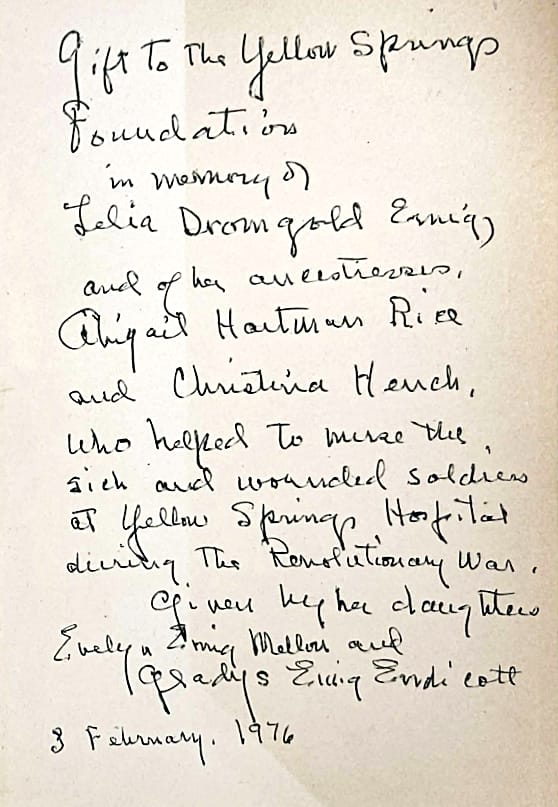 Gift To The Yellow Springs
Foundation
in memory of
Lelia Dromgold Emig,
and of her ancestresses,
Abigail Hartman Rice
and Christina Hench,
who helped to nurse the
sick and wounded soldiers
at Yellow Springs Hospital
during The Revolutionary War.
Given by her daughters
Evelyn Emig Mellon and
Gladys Emig Endicott
3 February, 1976